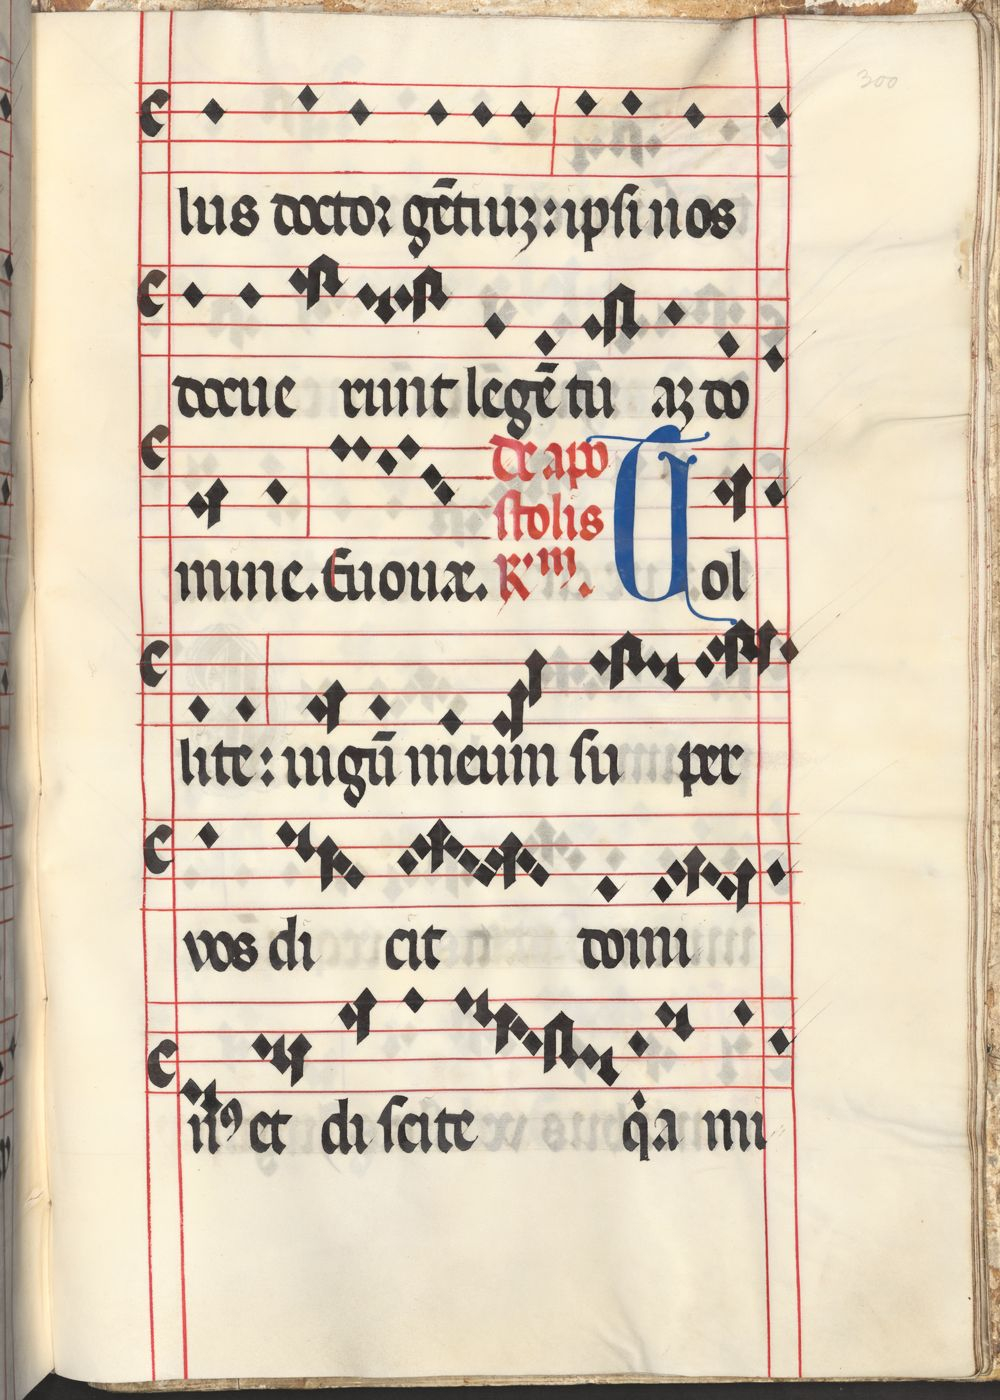 300
lus doctor gētiuꝫ: ipsi nos
docue runt legē tu aꝫ do
mine. Euouæ.
de apo
stolis
R'm.
Tol
lite: iugū meum su per
vos di cit domi
nꝰ et di scite q̇a mi